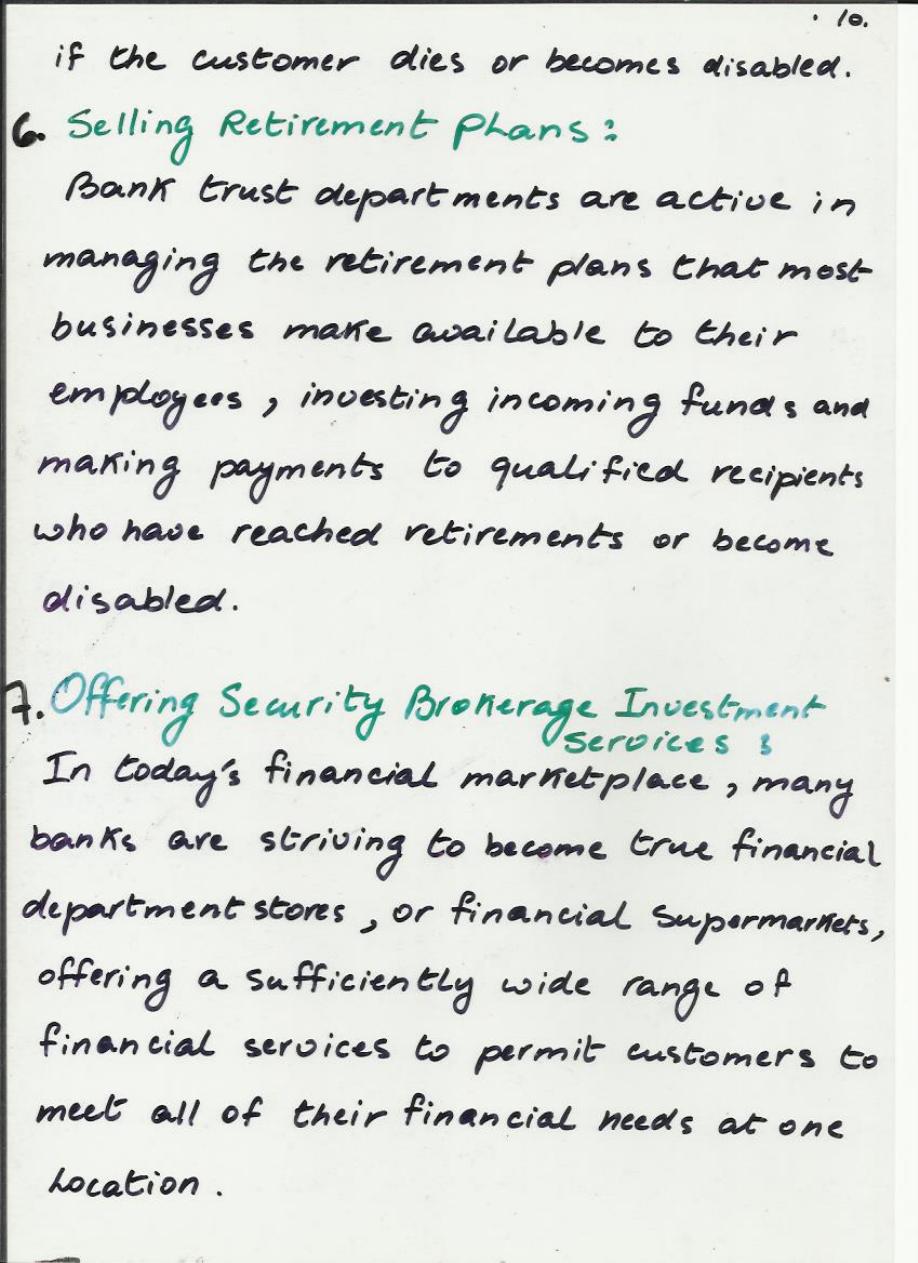 . 10.
if the customer dies or becomes disabled.
6. Selling Retirement Plans:
Bank trust departments are active in
managing the retirement plans that most
businesses make available to their
employees, investing incoming funds and
making payments to qualified recipients
who have reached retirements or become
disabled.
7. Offering Security Brokerage Investment
Services:
In today's financial marketplace, many
banks are striving to become true financial
department stores, or financial supermarkets,
offering a sufficiently wide range of
financial services to permit customers to
meet all of their financial needs at one
Location.